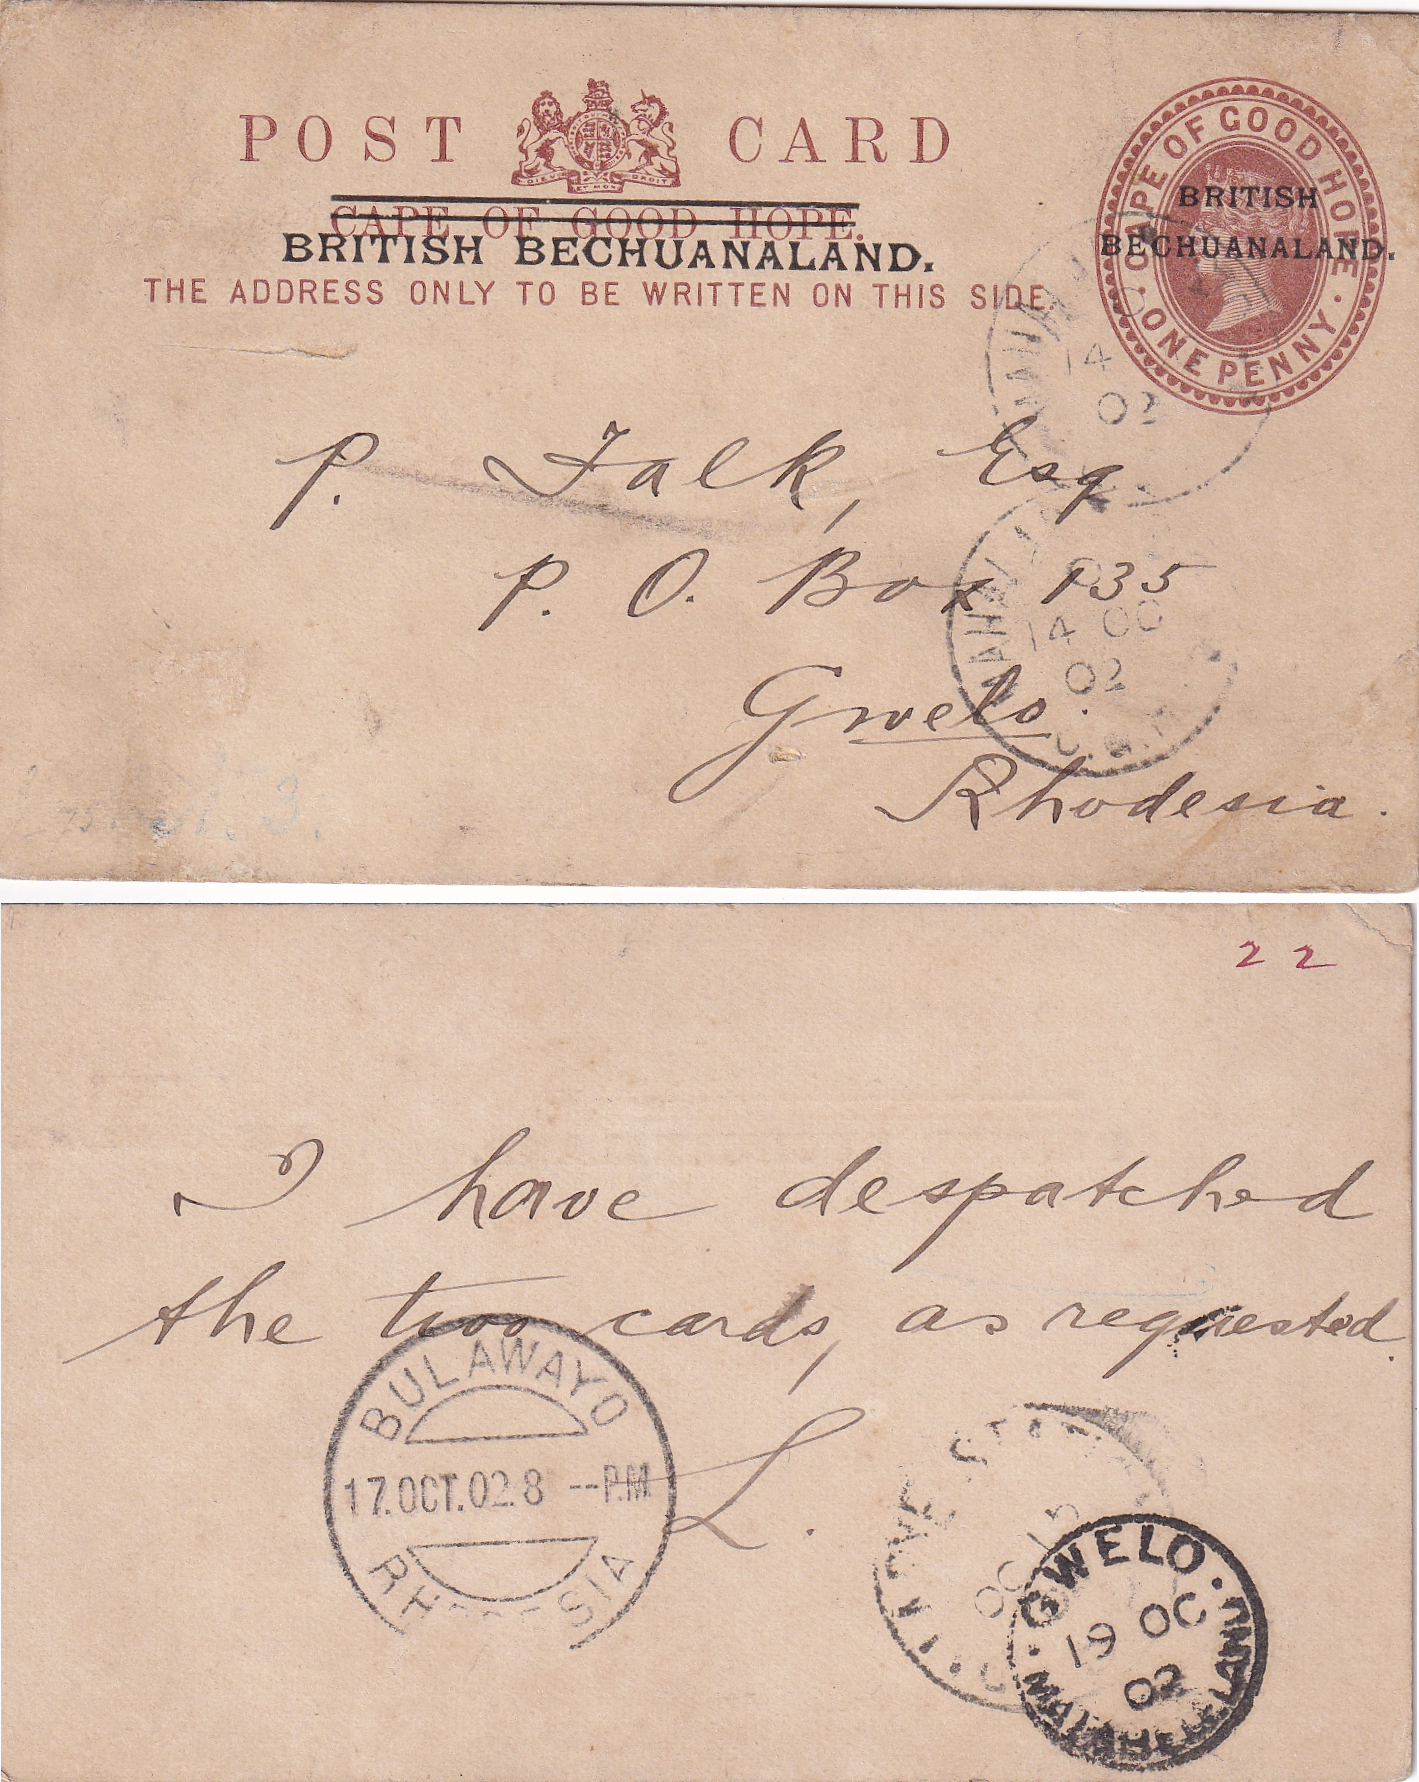 POST CARD
DIEU ET MON DROIT
CAPE OF GOOD HOPE.
BRITISH BECHUANALAND.
THE ADDRESS ONLY TO BE WRITTEN ON THIS SIDE.
CAPE OF GOOD HOPE
BRITISH
BECHUANALAND.
ONE PENNY
14
02
P. Falk, Esq
P. O. Box 135
14 OC
02
Gwelo.
Rhodesia.
22
I have despatched
the two cards, as requested.
L.
BULAWAYO
17.OCT.02.8 --P.M.
RHODESIA
OC 15
GWELO
19 OC
02
MATABELELAND